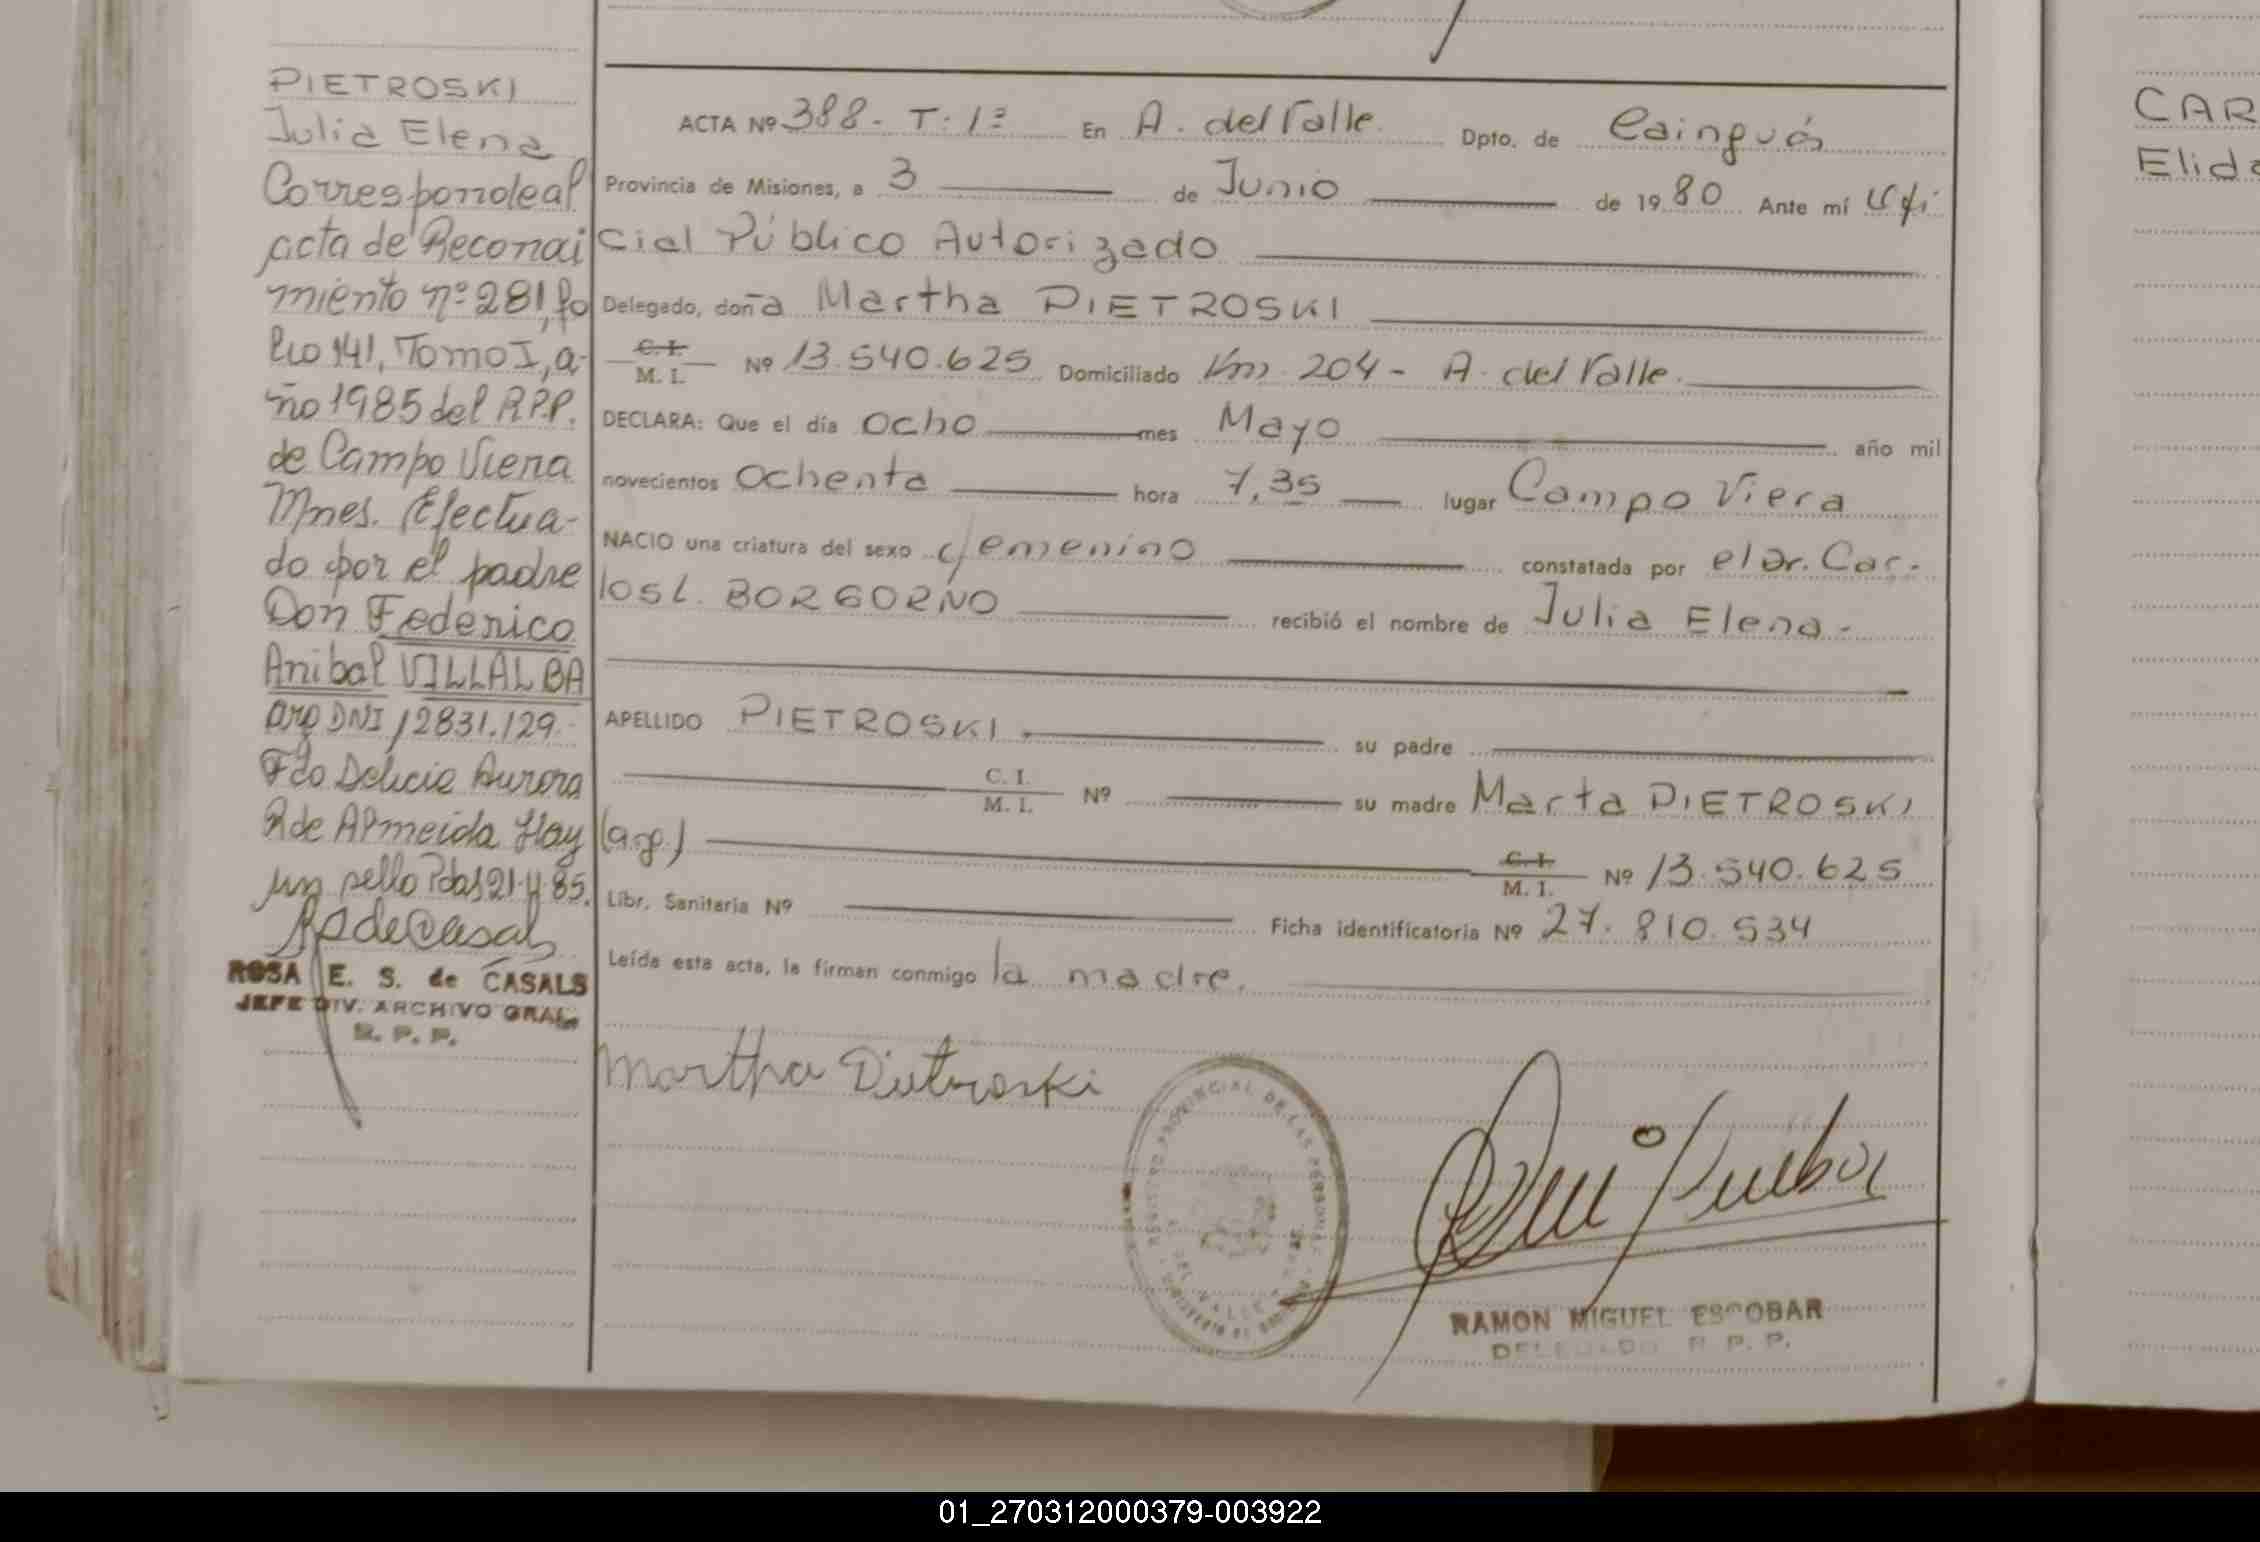 PIETROSKI
Julia Elena
Corresponde al
acta de Reconoci
miento nº 281, fo
lio 141, Tomo I, a-
ño 1985 del R.P.P.
de Campo Viera
Mnes. Efectua-
do por el padre
Don Federico
Anibal VILLALBA
arg DNI 12831.129.
Fdo Delicia Aurora
R de Almeida Hay
un sello Pdas 21-4-85.
ROSA E. S. de CASALS
JEFE DIV. ARCHIVO GRAL
R. P. P.
ACTA Nº 388 - T: 1º En A. del Valle Dpto. de Cainguás
Provincia de Misiones, a 3 de Junio de 1980 Ante mí Ofi
cial Público Autorizado
Delegado, doña Martha PIETROSKI
C. I.
M. I. Nº 13.540.625 Domiciliado Km. 204 - A. del Valle.
DECLARA: Que el día ocho mes Mayo año mil
novecientos ochenta hora 7,35 lugar Campo Viera
NACIO una criatura del sexo femenino constatada por el Dr. Car-
los L. BORGORNO recibió el nombre de Julia Elena-
APELLIDO PIETROSKI su padre
C. I.
M. I. Nº su madre Marta PIETROSKI
(arg.) C. I.
M. I. Nº 13.540.625
Libr. Sanitaria Nº Ficha identificatoria Nº 27.810.534
Leída esta acta, la firman conmigo la madre.
Martha Pietroski
REGISTRO PROVINCIAL DE LAS PERSONAS
DEL VALLE
RAMON MIGUEL ESCOBAR
DELEGADO R. P. P.
CAR
Elida
01_270312000379-003922